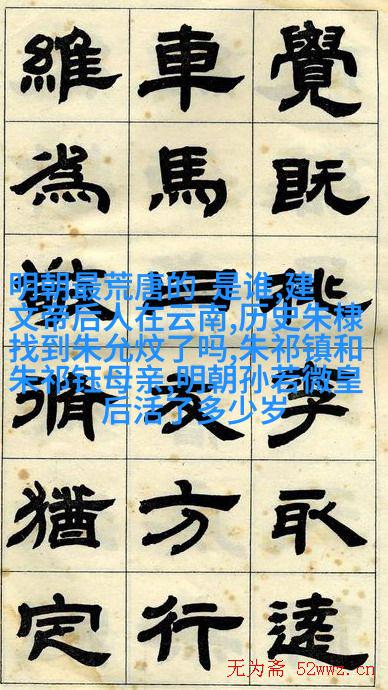 覺既取達
車馬方行
維為猶定
明朝最荒唐的 是谁,建
文帝后人在云南,历史朱棣
找到朱允炆了吗,朱祁镇和
朱祁钰母亲 明朝孙若微皇
后活了多少岁
无为斋 52wwz.cn